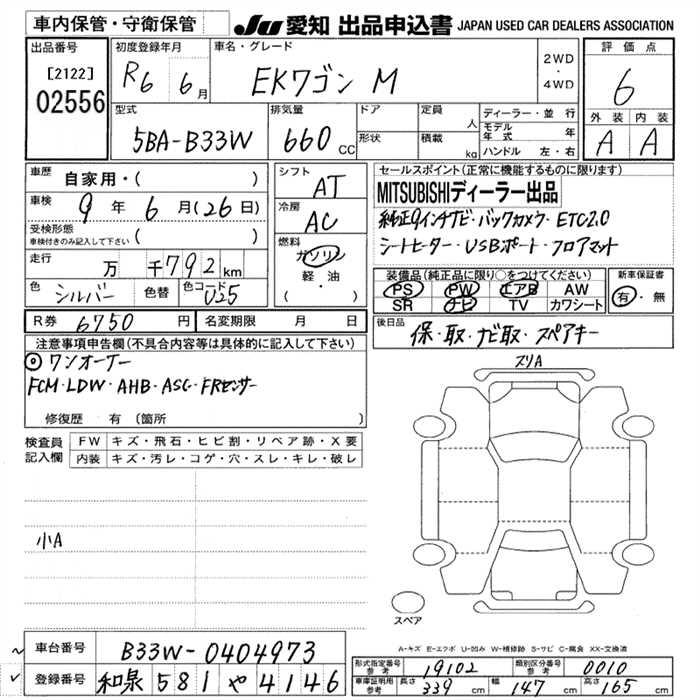 車内保管・守衛保管
JU 愛知 出品申込書 JAPAN USED CAR DEALERS ASSOCIATION
出品番号
[2122]
02556
初度登録年月
R6 6月
車名・グレード
EKワゴン M
2WD
・
4WD
評価点
6
外装 内装
A A
型式
5BA-B33W
排気量
660 cc
ドア
形状
定員 人
積載 kg
ディーラー・並行
モデル年式 年
ハンドル 左・右
車歴
自家用・( )
車検
9年 6月(26日)
受検形態
車検付きのみ記入して下さい ( )
走行
万 千792km
色 シルバー 色替 色コード U25
シフト
AT
冷房
AC
燃料
ガソリン
軽・油
( )
セールスポイント(正常に機能するものに限ります)
MITSUBISHIディーラー出品
純正9インチナビ・バックカメラ・ETC2.0
シートヒーター・USBポート・フロアマット
装備品(純正品に限り○をつけてください)
PS PW エアB AW
SR ナビ TV カワシート
新車保証書
有・無
R券 6750円 名変期限 月 日
後日品
保・取・ナビ取・スペアキー
注意事項申告欄(不具合内容等は具体的に記入して下さい)
◎ワンオーナー
FCM・LDW・AHB・ASC・FRセンサー
修復歴 有 (箇所 )
検査員記入欄
FW キズ・飛石・ヒビ割・リペア跡・X要
内装 キズ・汚レ・コゲ・穴・スレ・キレ・破レ
小A
スリA
スペア
A-キズ E-エクボ U-凹み W-補修跡 S-サビ C-腐食 XX-交換済
車台番号 B33W-0404973
登録番号 和泉 581 や 4146
形式指定番号 参考 19102 類別区分番号 参考 0010
車庫証明用参考 長さ 339cm 幅 147cm 高さ 165cm